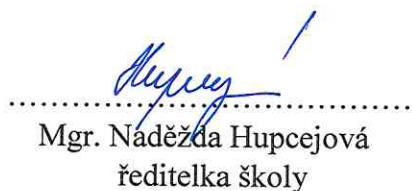 Mgr. Naděžda Hupcejová
ředitelka školy